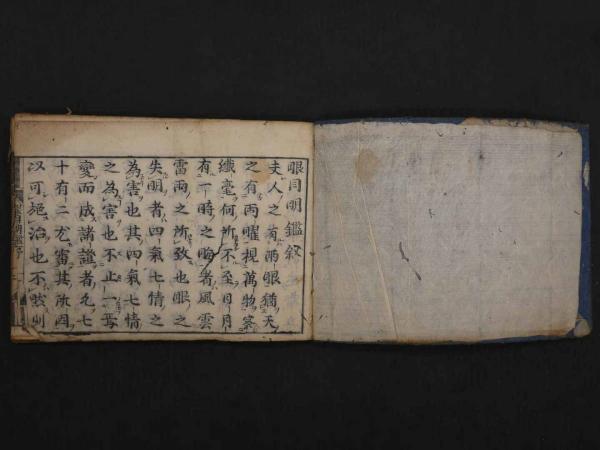 眼目明鑑敘
夫人之有兩眼猶天
之有兩曜視萬物察
纖毫何所不至日月
有一時之晦者風雲
雷雨之所致也眼之
失明者四氣七情之
為害也其四氣七情
之為害也不止一焉
變而成諸證者凡七
十有二尤審其所因
以可施治也不然則